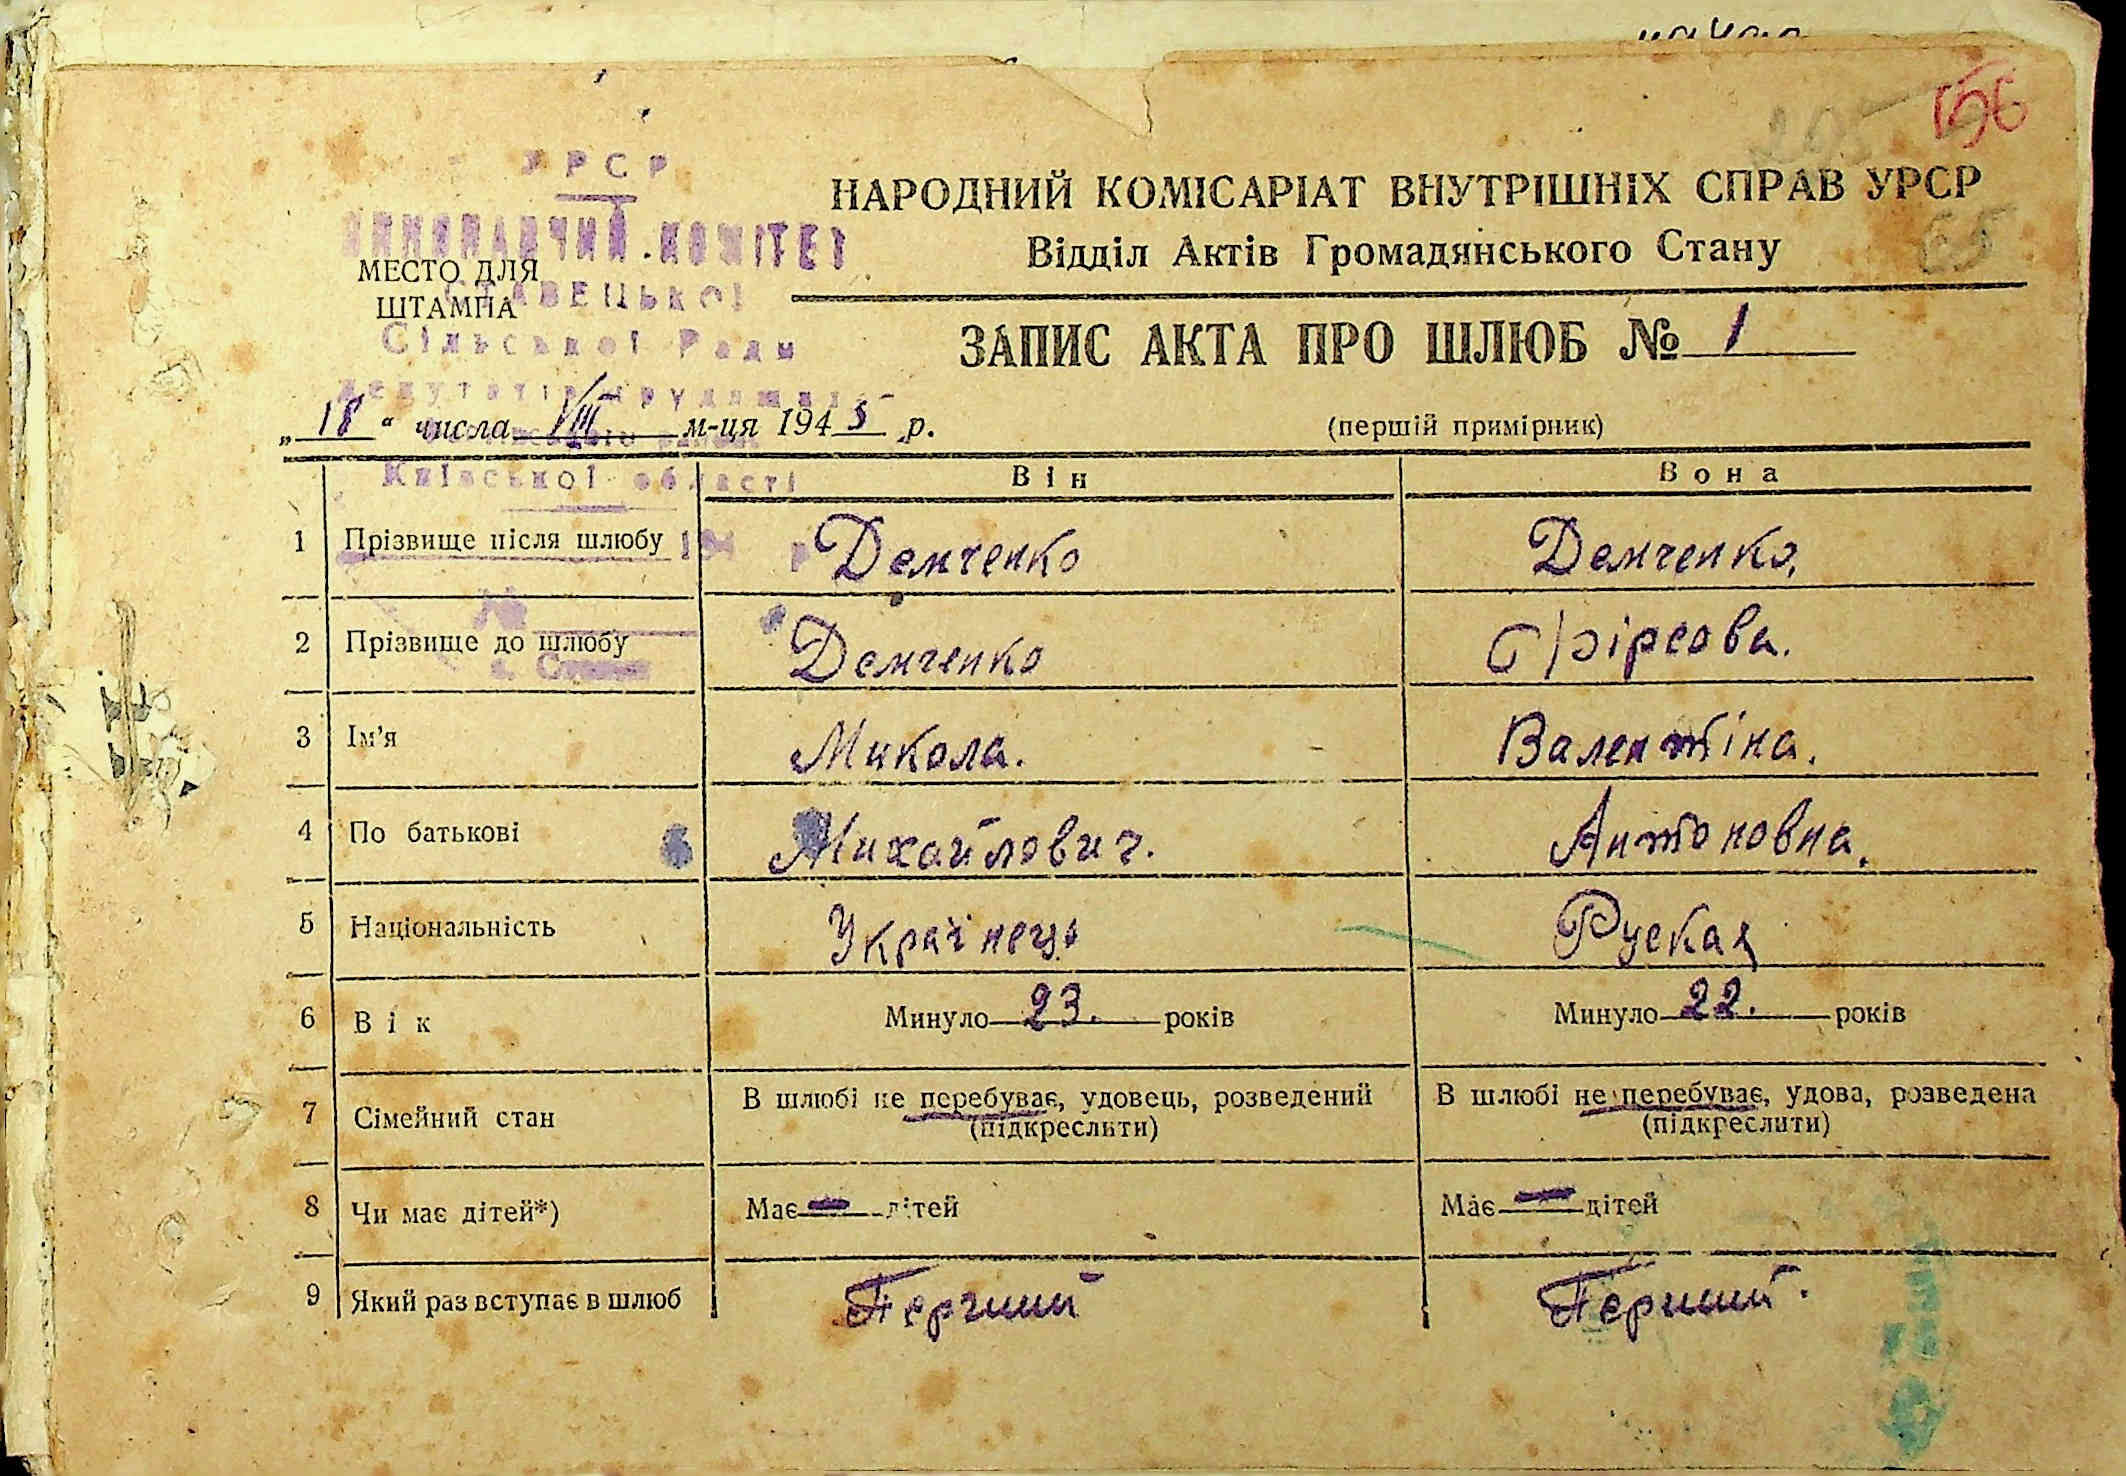 156
205
65
УРСР
ВИКОНАВЧИЙ КОМІТЕТ
НАРОДНИЙ КОМІСАРІАТ ВНУТРІШНІХ СПРАВ УРСР
Відділ Актів Громадянського Стану
МЕСТО ДЛЯ
ШТАМПА
Сільської Ради
депутатів трудящих
Київської області
ЗАПИС АКТА ПРО ШЛЮБ № 1
„18“ числа VIII м-ця 1945 р.
(першій примірник)
Він Вона
1 Прізвище після шлюбу Демченко Демченко,
2 Прізвище до шлюбу Демченко Фірсова.
3 Ім’я Микола. Валентіна.
4 По батькові Михайлович. Антоновна.
5 Національність Українець Руская
6 Вік Минуло 23. років Минуло 22. років
7 Сімейний стан В шлюбі не перебуває, удовець, розведений В шлюбі не перебуває, удова, розведена
(підкреслити) (підкреслити)
8 Чи має дітей*) Має — дітей Має — дітей
9 Який раз вступає в шлюб Перший Перший.